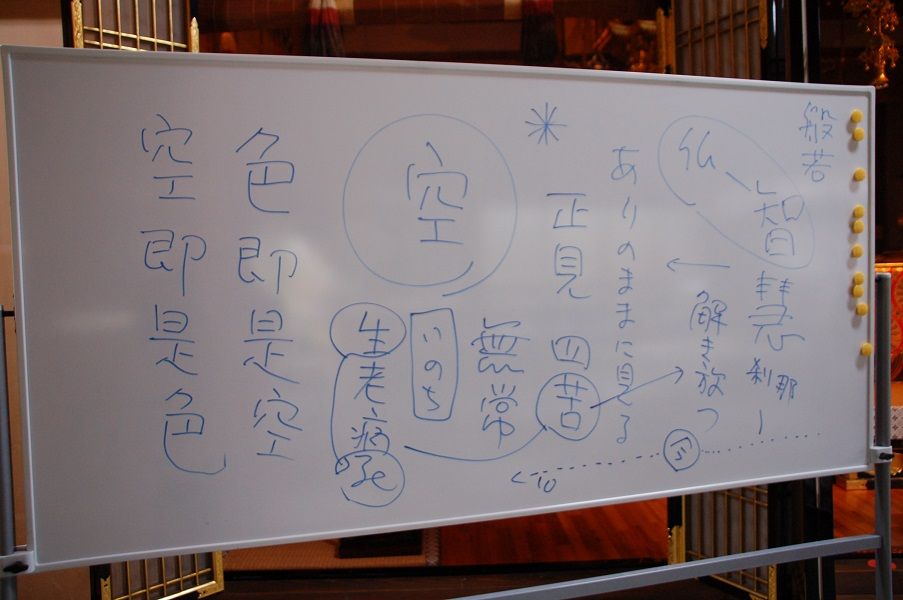 般若
仏智慧
刹那
解き放つ
ありのままに見る
今
10
正見
四苦
無常
空
いのち
生老病死
色即是空
空即是色